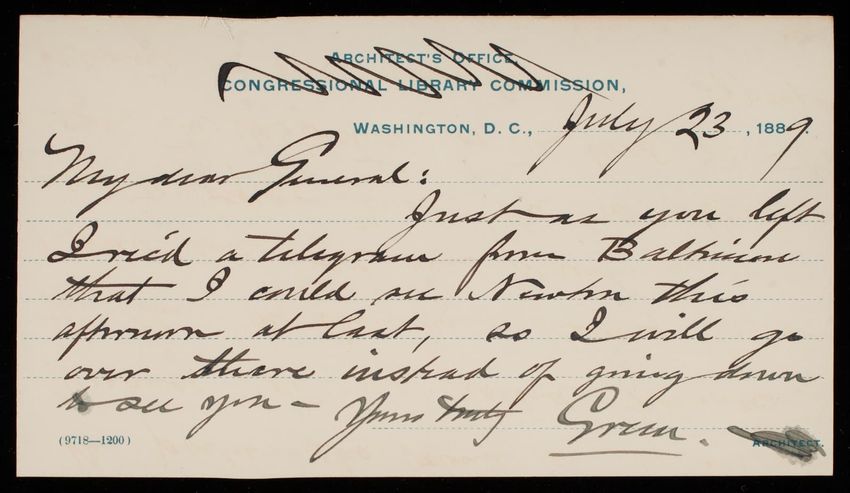 ARCHITECT'S OFFICE,
CONGRESSIONAL LIBRARY COMMISSION,
WASHINGTON, D. C., July 23, 1889.
My dear General:
Just as you left
I rec'd a telegram from Baltimore
that I could see Newton this
afternoon at last, so I will go
over there instead of going down
to see you – Yours truly Green.
(9718—1200) ARCHITECT.